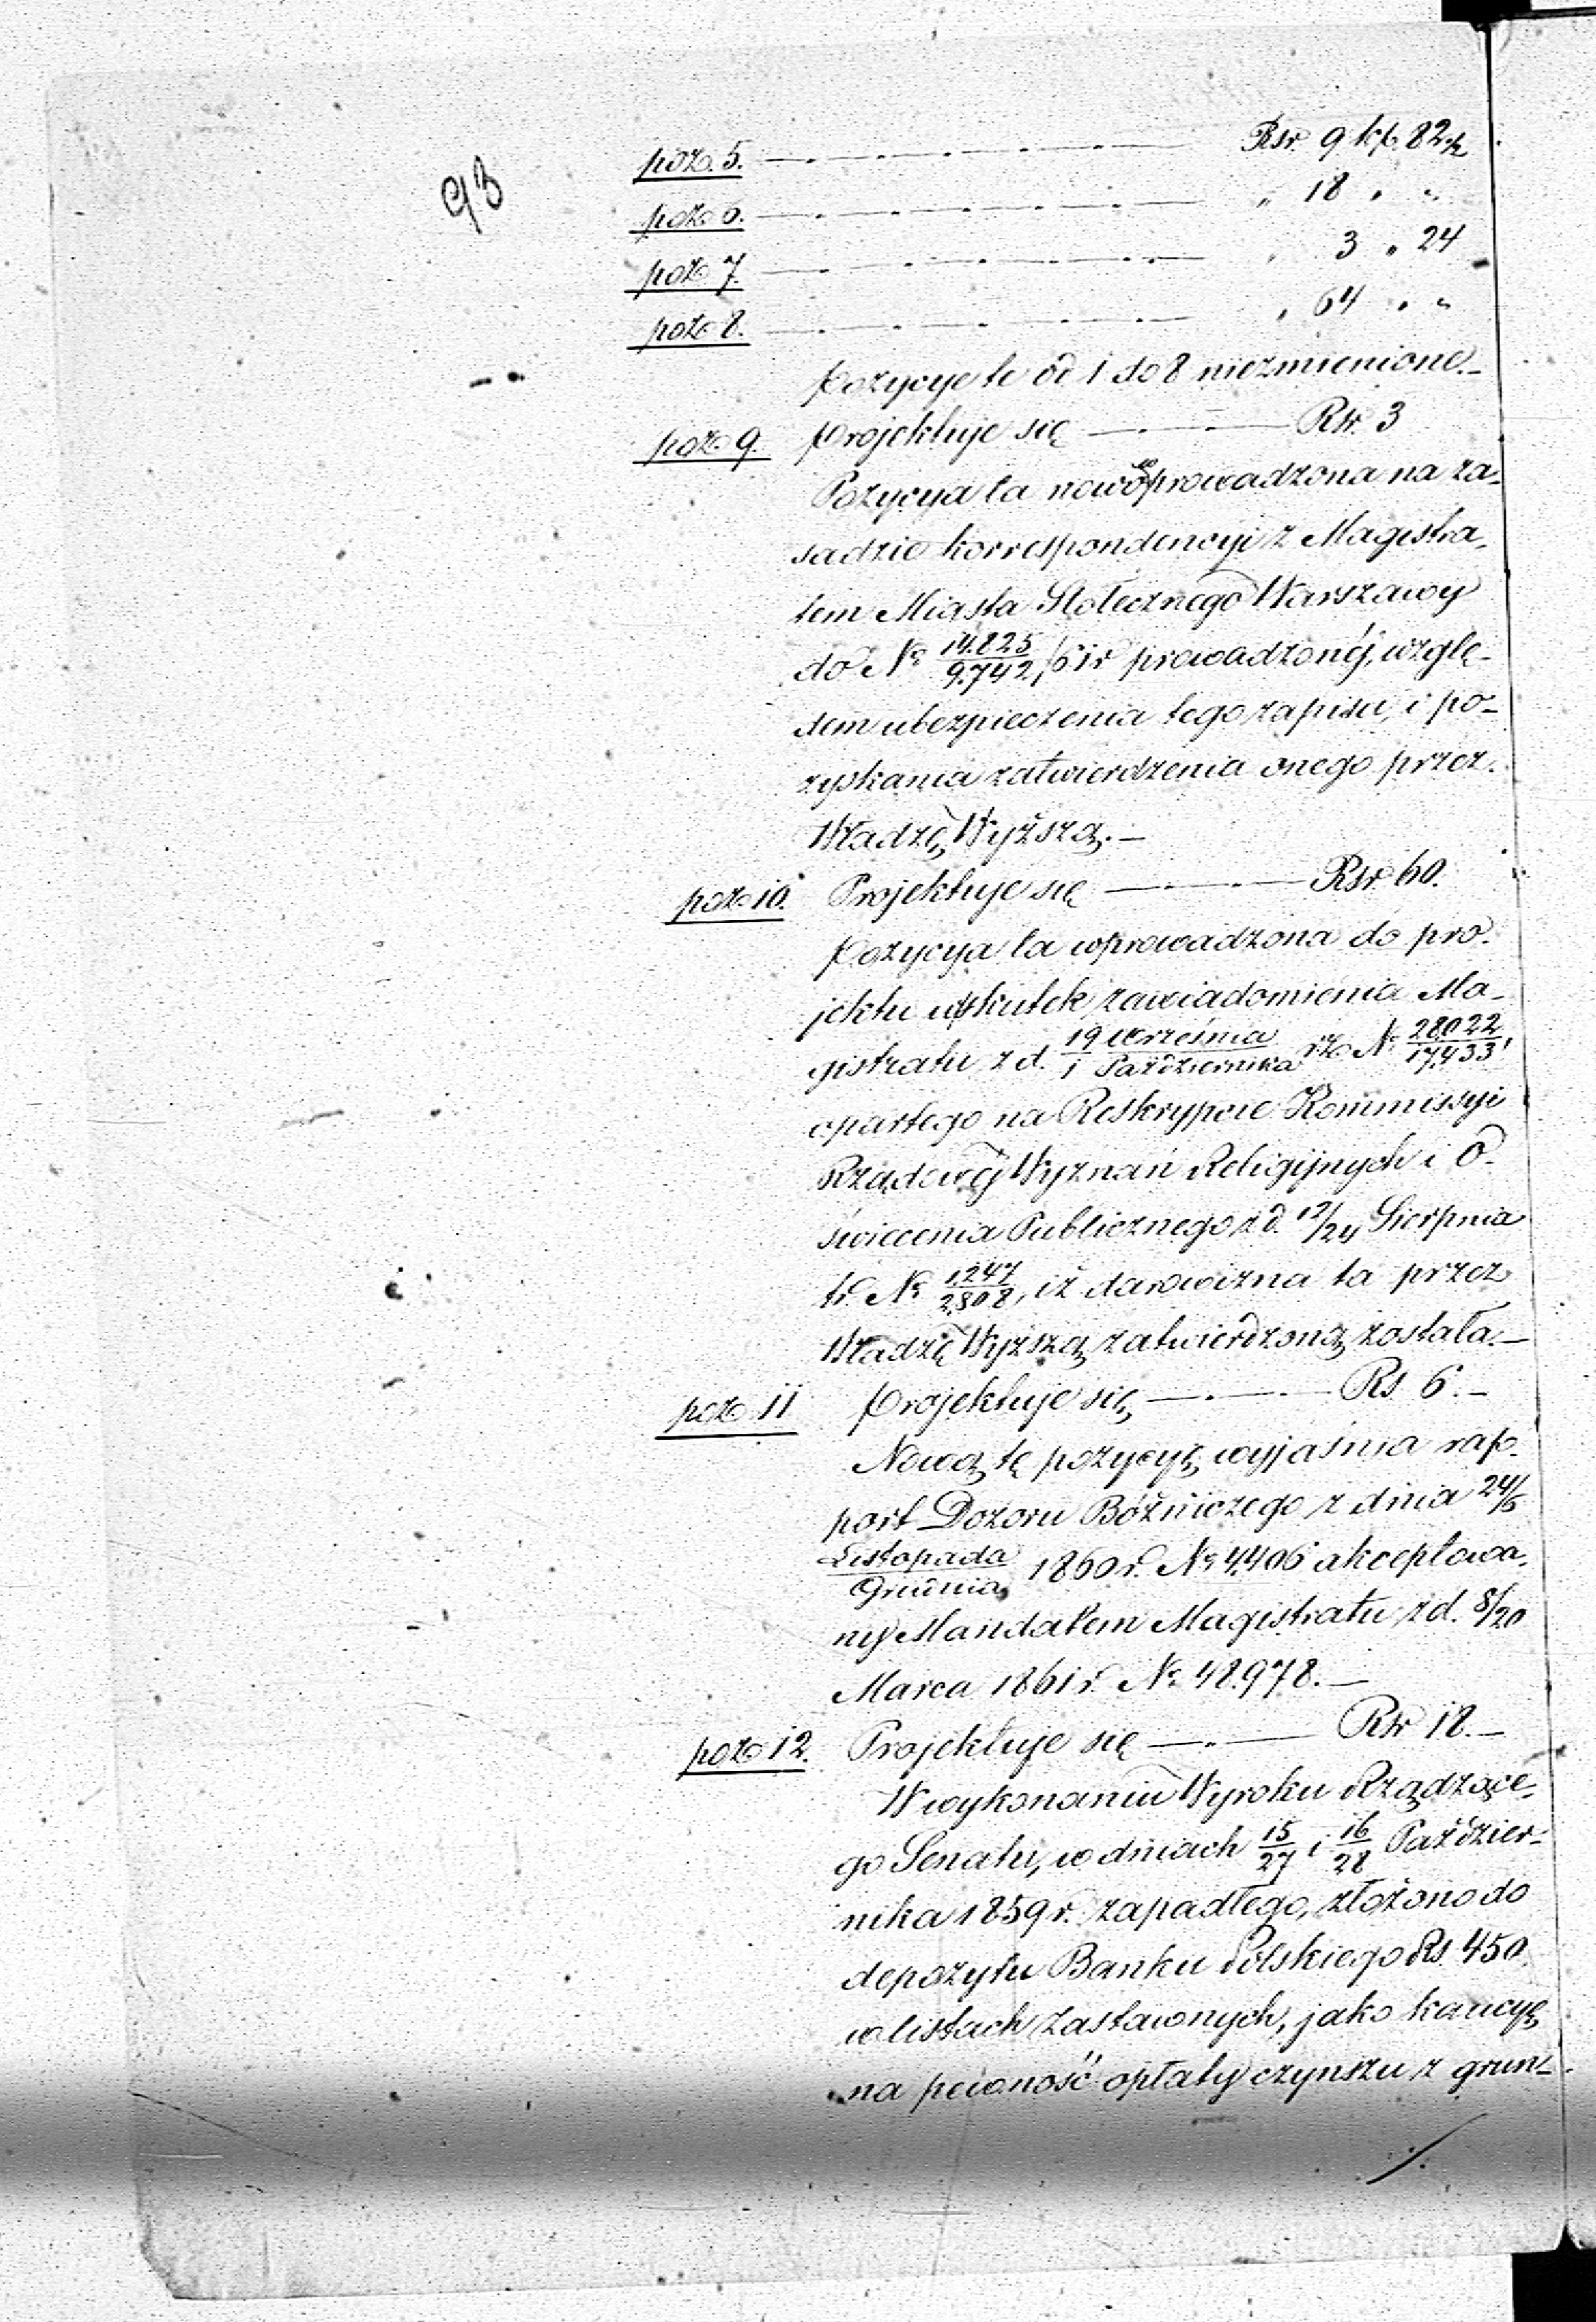 93
poz. 5. — . — . — . — Rsr. 9 kp. 82 ½
poz. 6. — . — . — . — „ 18 „ „
poz. 7. — . — . — . — „ 3 „ 24
poz. 8. — . — . — . — „ 64 „ „
Pozycye te od 1 do 8 niezmienione. —
poz. 9. Projektuje się — . — . — Rsr. 3
Pozycya ta nowo wprowadzona na za-
sadzie korrespondencyi z Magistra-
tem Miasta Stołecznego Warszawy
do № 14.825/9.742, 61 r prowadzonéj, wzglę-
dem ubezpieczenia tego zapisu, i po-
zyskania zatwierdzenia onego przez
Władzę Wyższą. —
poz. 10. Projektuje się — . — . — Rsr. 60.
Pozycya ta wprowadzona do pro-
jektu wskutek zawiadomienia Ma-
gistratu z d. 19 Września/1 Października r. z. № 28.022/17,433,
opartego na Reskrypcie Kommissyi
Rządowéj Wyznań Religijnych i O-
świecenia Publicznego z d. 12/24 Sierpnia
t. r. № 1,247/2,808, iż darowizna ta przez
Władzę Wyższą zatwierdzoną została. —
poz. 11 Projektuje się — . — . — Rs 6. —
Nową tę pozycyę wyjaśnia rap-
port Dozoru Bóżniczego z dnia 24/6
Listopada/Grudnia 1860 r. № 4,406 akceptowa-
ny Mandatem Magistratu z d. 8/20
Marca 1861 r. № 48.978. —
poz. 12. Projektuje się — . — Rsr 18. —
W wykonaniu Wyroku Rządzące-
go Senatu, w dniach 15/27 i 16/28 Paździer-
nika 1859 r. zapadłego, złożono do
depozytu Banku Polskiego Rs. 450
w listach Zastawnych, jako kaucyę
na pewność opłaty czynszu z grun-
./.